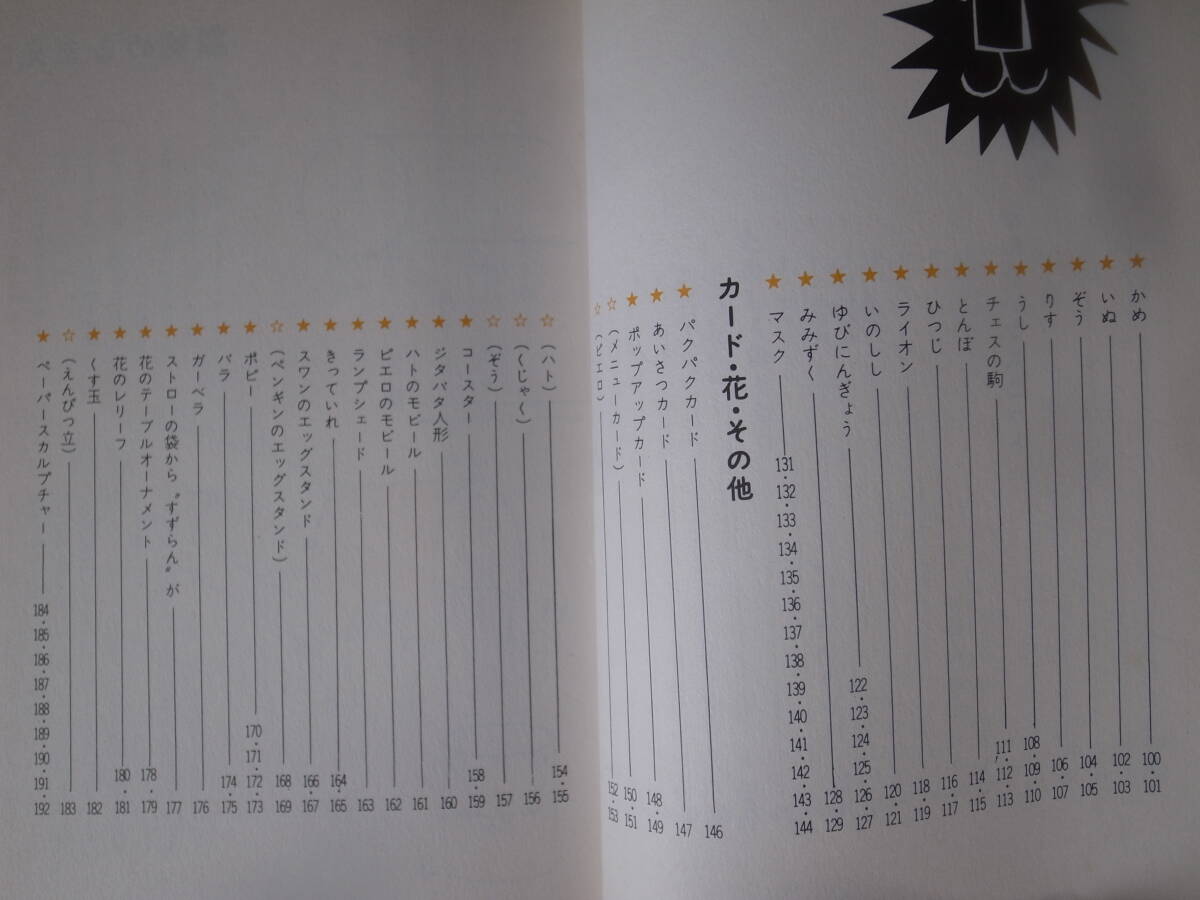 ★かめ――100・101
★いぬ――102・103
★ぞう――104・105
★りす――106・107
★うし――108・109・110
★チェスの駒――111・112・113
★とんぼ――114・115
★ひつじ――116・117
★ライオン――118・119
★いのしし――120・121
★ゆびにんぎょう――122・123・124・125・126・127
★みみずく――128・129
★マスク――131・132・133・134・135・136・137・138・139・140・141・142・143・144
カード・花・その他
★パクパクカード――146
★あいさつカード――147
★ポップアップカード――148・149
☆(メニューカード)――150・151
☆(ピエロ)――152・153
☆(ハト)――154・155
☆(くじゃく)――156
☆(ぞう)――157
★コースター――158・159
★ジタバタ人形――160
★ハトのモビール――161
★ピエロのモビール――162
★ランプシェード――163
★きっていれ――164・165
★スワンのエッグスタンド――166・167
☆(ペンギンのエッグスタンド)――168・169
★ポピー――170・171・172・173
★バラ――174・175
★ガーベラ――176
★ストローの袋から〝すずらん〟が――177
★花のテーブルオーナメント――178・179
★花のレリーフ――180・181
★くす玉――182
☆(えんぴつ立)――183
★ペーパースカルプチャー――184・185・186・187・188・189・190・191・192